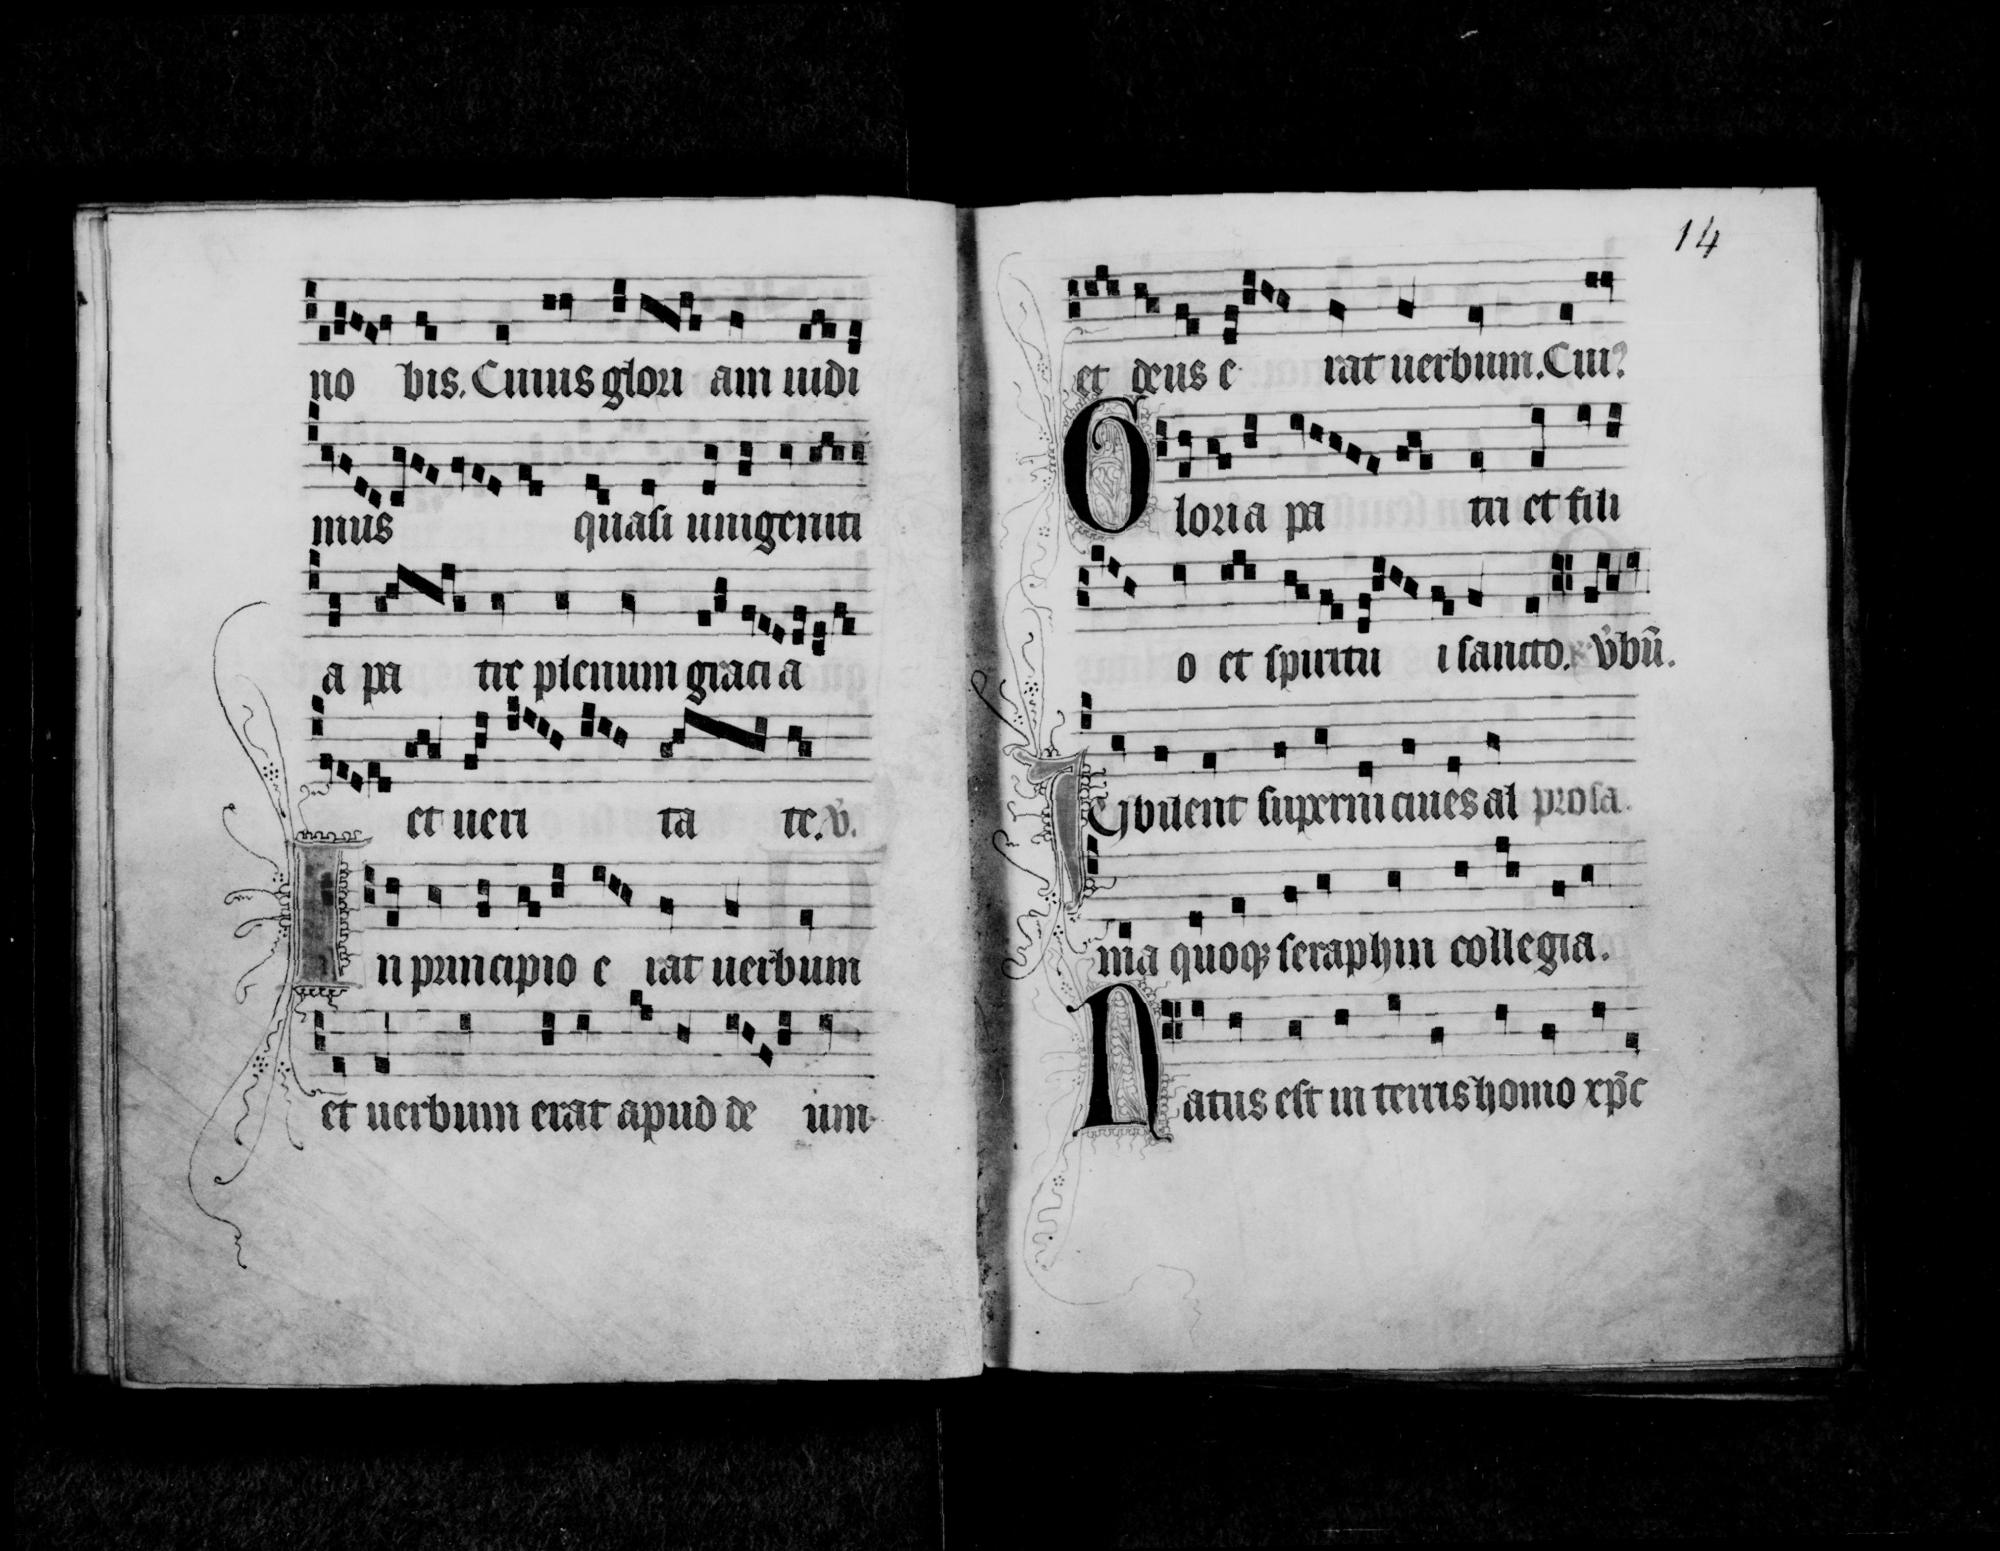 no bis. Cuius glori am uidi
mus quasi unigeniti
a pa tre plenum gracia
et ueri ta te. v̉.
In principio e rat uerbum
et uerbum erat apud de um
14
et deus e rat uerbum. Cui9
Gloria pa tri et fili
o et spiritu i sancto. v̉bū.
Iubilent superni ciues al prosa.
ma quoqꝫ seraphin collegia.
Natus est in terris homo xp̄c